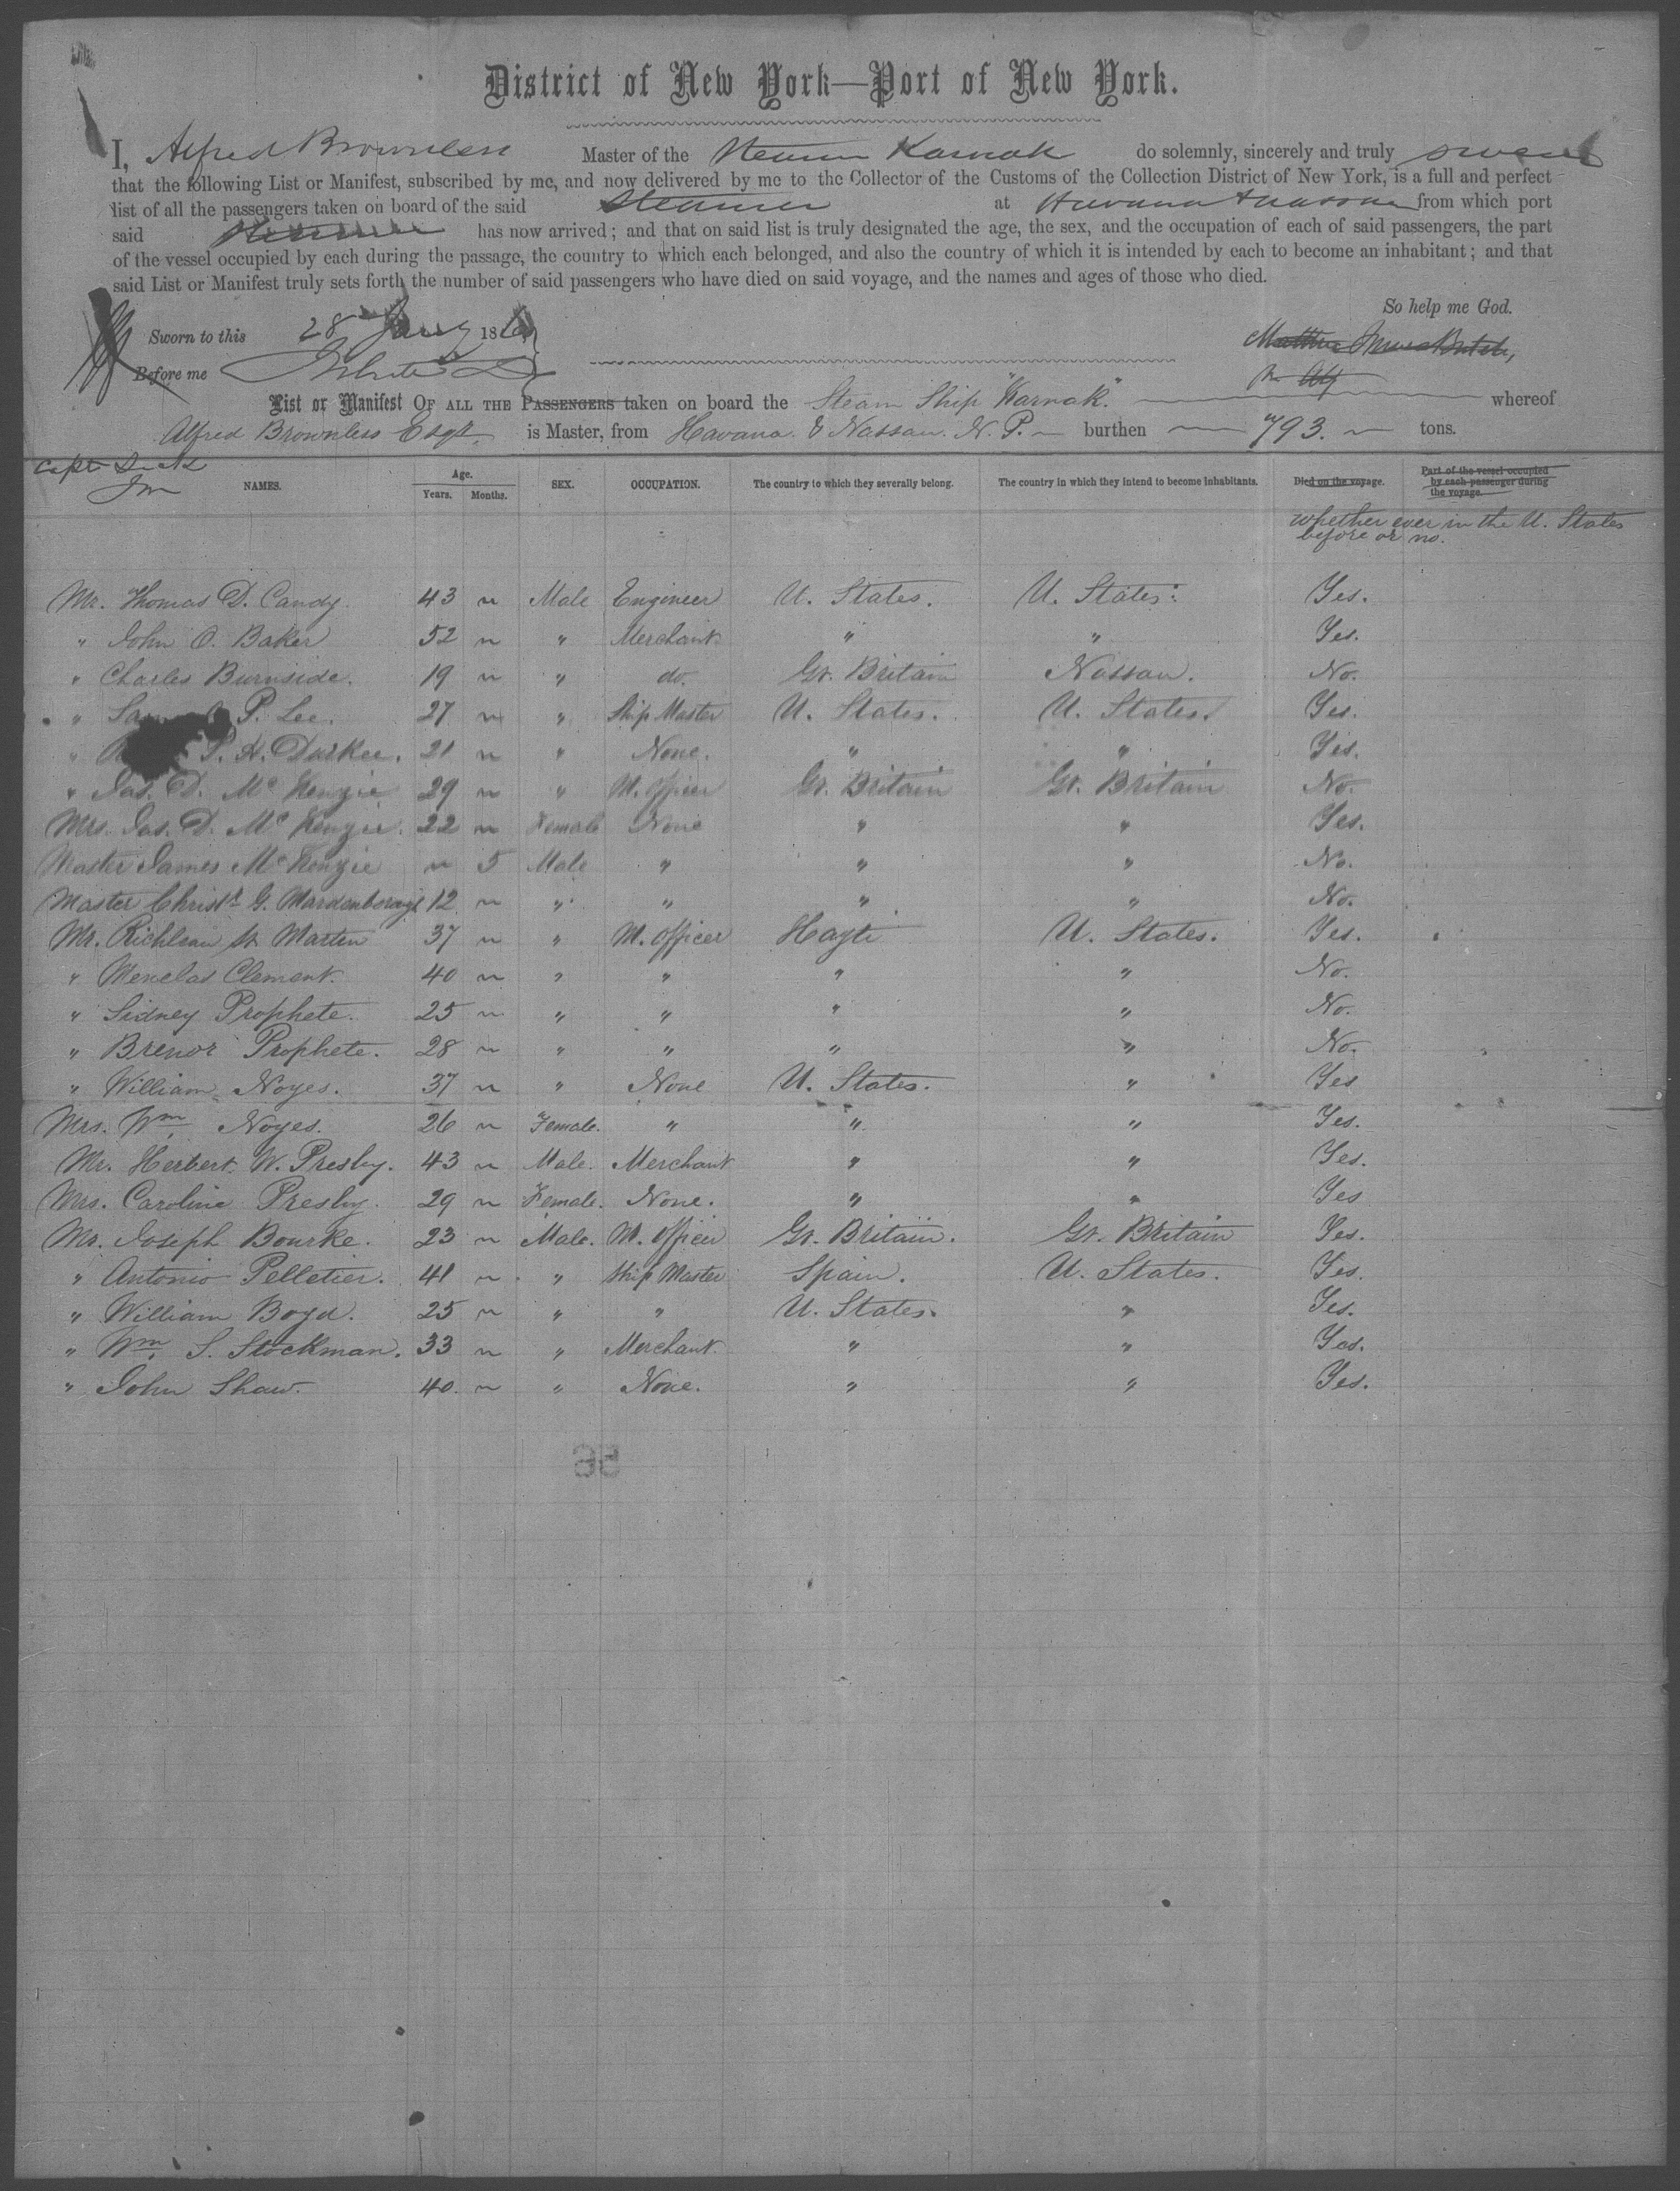 District of New York—Port of New York.
I, Alfred Brownless Master of the Steamer Karnak do solemnly, sincerely and truly swear
that the following List or Manifest, subscribed by me, and now delivered by me to the Collector of the Customs of the Collection District of New York, is a full and perfect
list of all the passengers taken on board of the said Steamer at Havana & Nassau from which port
said Steamer has now arrived; and that on said list is truly designated the age, the sex, and the occupation of each of said passengers, the part
of the vessel occupied by each during the passage, the country to which each belonged, and also the country of which it is intended by each to become an inhabitant; and that
said List or Manifest truly sets forth the number of said passengers who have died on said voyage, and the names and ages of those who died.
So help me God.
Sworn to this 28 Jany 186
Before me
List or Manifest OF ALL THE PASSENGERS taken on board the Steam Ship "Karnak" whereof
Alfred Brownless Esqr. is Master, from Havana & Nassau. N. P. burthen 793. tons.
NAMES. Age. Years. Months. SEX. OCCUPATION. The country to which they severally belong. The country in which they intend to become inhabitants. Died on the voyage. Part of the vessel occupied by each passenger during the voyage.
whether ever in the U. States
before or no.
Mr. Thomas D. Candy. 43 " Male Engineer U. States. U. States. Yes.
" John O. Baker 52 " " Merchant " " Yes.
" Charles Burnside. 19 " " do. Gt. Britain Nassau. No.
" P. Lee. 27 " " Ship Master U. States. U. States. Yes.
" P. H. Durkee. 21 " " None. " " Yes.
" Jas. D. McKenzie 29 " " M. Officer Gt. Britain Gt. Britain No.
Mrs. Jas. D. McKenzie. 22 " Female None " " Yes.
Master James McKenzie " 5 Male " " " No.
Master Christr. G. Wardenborough 12 " " " " " No.
Mr. Richlean St Martin 37 " " M. Officer Hayti U. States. Yes.
" Menelas Clement. 40 " " " " " No.
" Sidney Prophete. 25 " " " " " No.
" Brenor Prophete. 28 " " " " " No.
" William Noyes. 37 " " None U. States. " Yes
Mrs. Wm. Noyes. 26 " Female. " " " Yes.
Mr. Herbert W. Presby. 43 " Male. Merchant " " Yes.
Mrs. Caroline Presby. 29 " Female. None. " " Yes
Mr. Joseph Bourke. 23 " Male. M. Officer Gt. Britain. Gt. Britain Yes.
" Antonio Pelletier. 41 " " Ship Master Spain. U. States. Yes.
" William Boyd. 25 " " " U. States. " Yes.
" Wm. S. Stockman. 33 " " Merchant. " " Yes.
" John Shaw. 40. " " None. " " Yes.